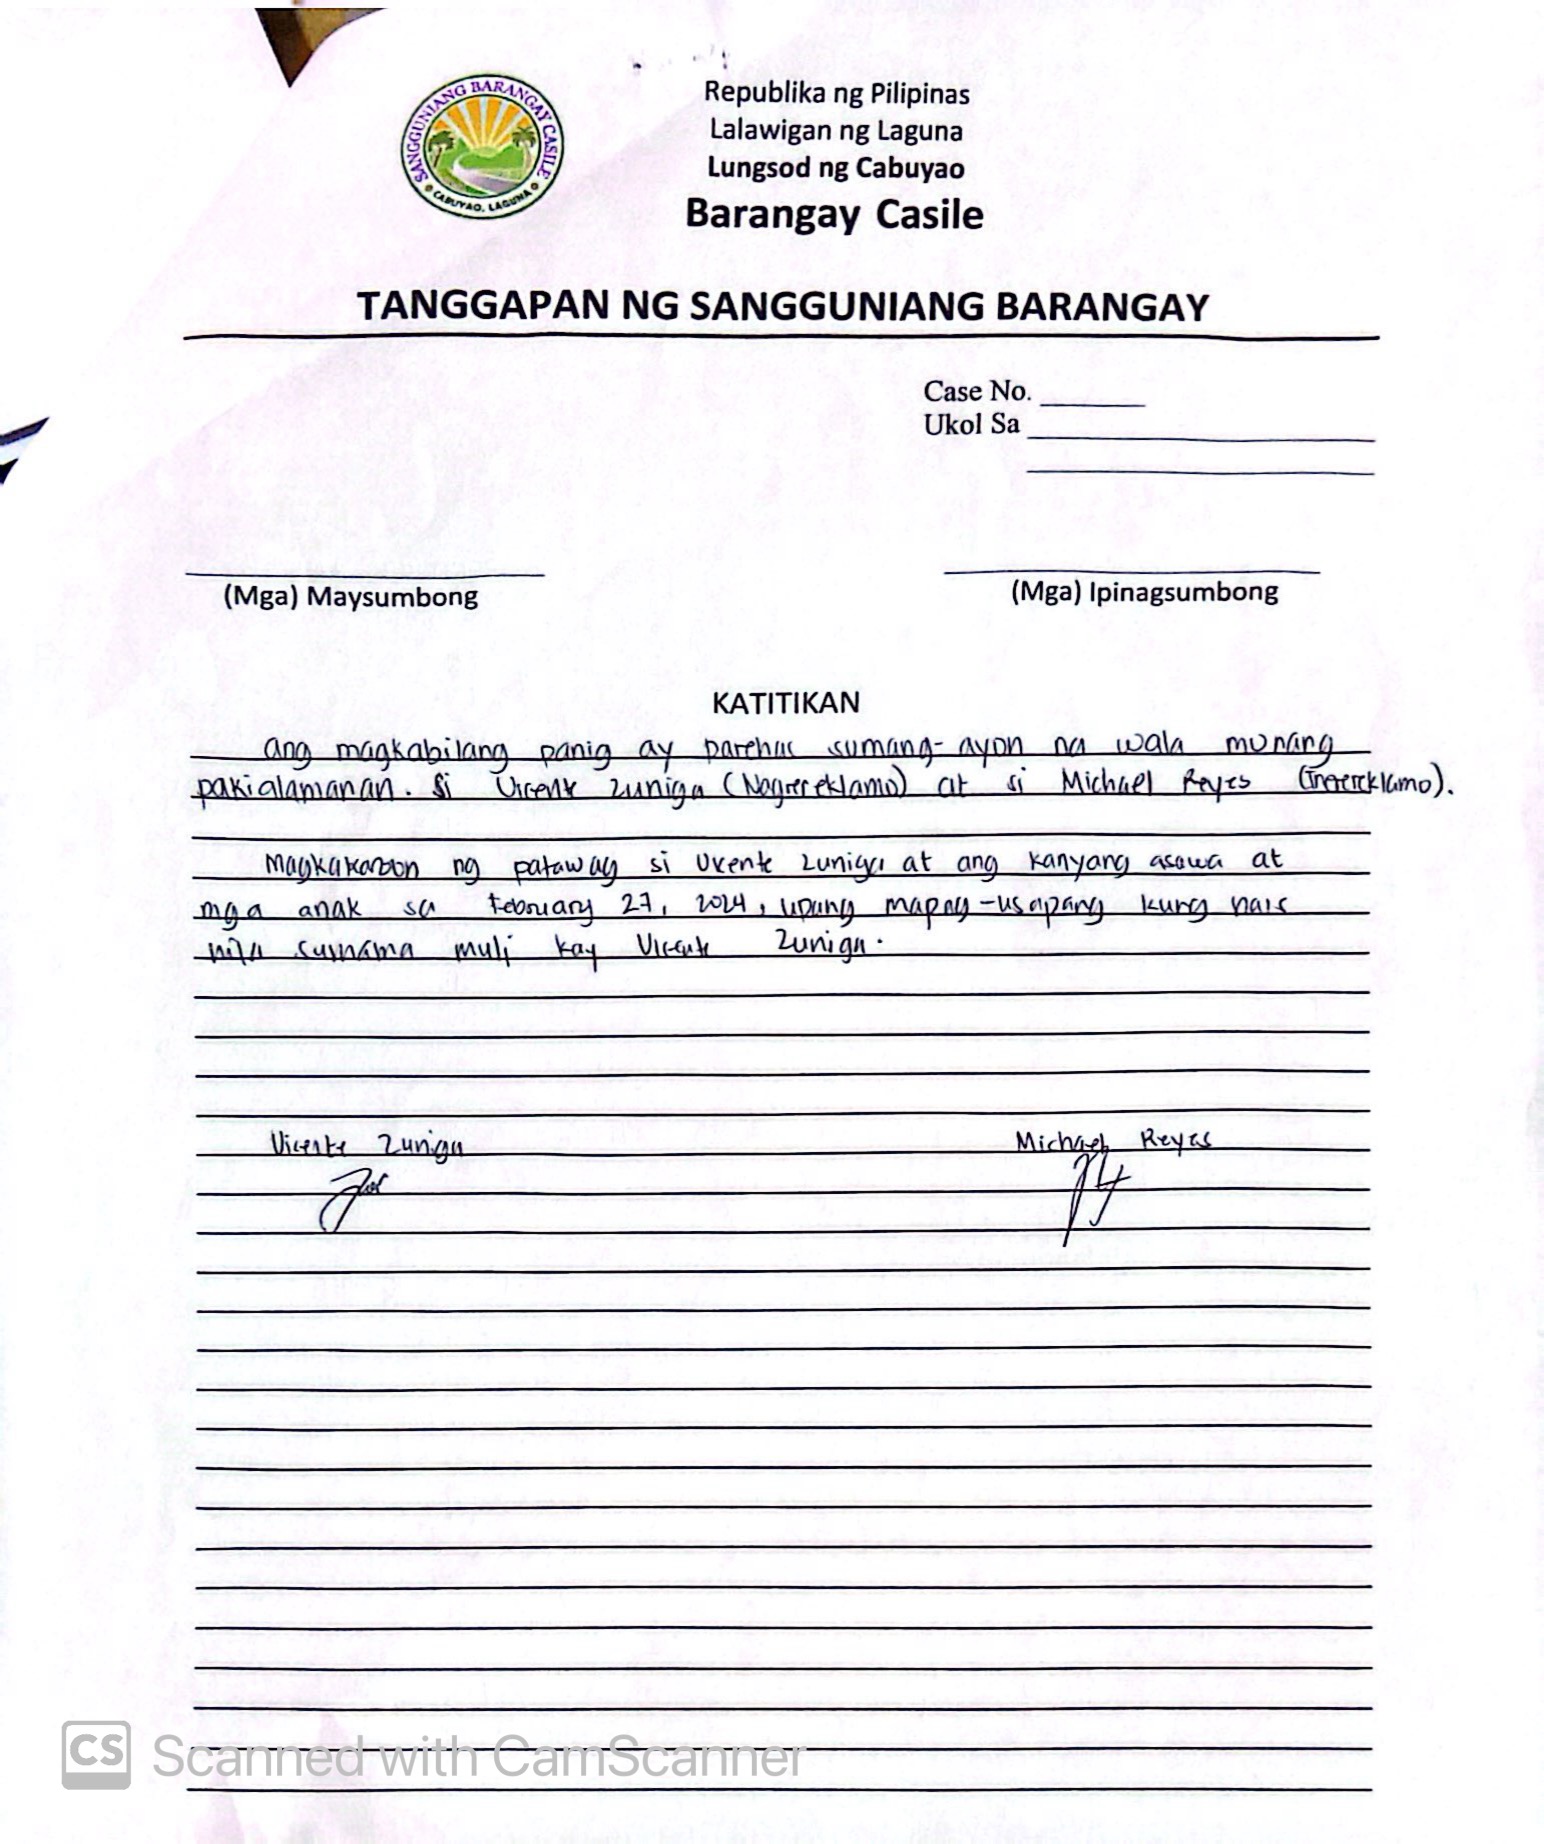 SANGGUNIANG BARANGAY CASILE
CABUYAO, LAGUNA
Republika ng Pilipinas
Lalawigan ng Laguna
Lungsod ng Cabuyao
Barangay Casile
TANGGAPAN NG SANGGUNIANG BARANGAY
Case No. ________
Ukol Sa ________
(Mga) Maysumbong
(Mga) Ipinagsumbong
KATITIKAN
Ang magkabilang panig ay parehas sumang-ayon na wala munang
pakialamanan. Si Vicente Zuniga (Nagrereklamo) at si Michael Reyes (Inirereklamo).
Magkakaroon ng patawag si Vicente Zuniga at ang kanyang asawa at
mga anak sa February 27, 2024, upang mapag-usapang kung nais
nila sumama muli kay Vicente Zuniga.
Vicente Zuniga
Michael Reyes
CS Scanned with CamScanner